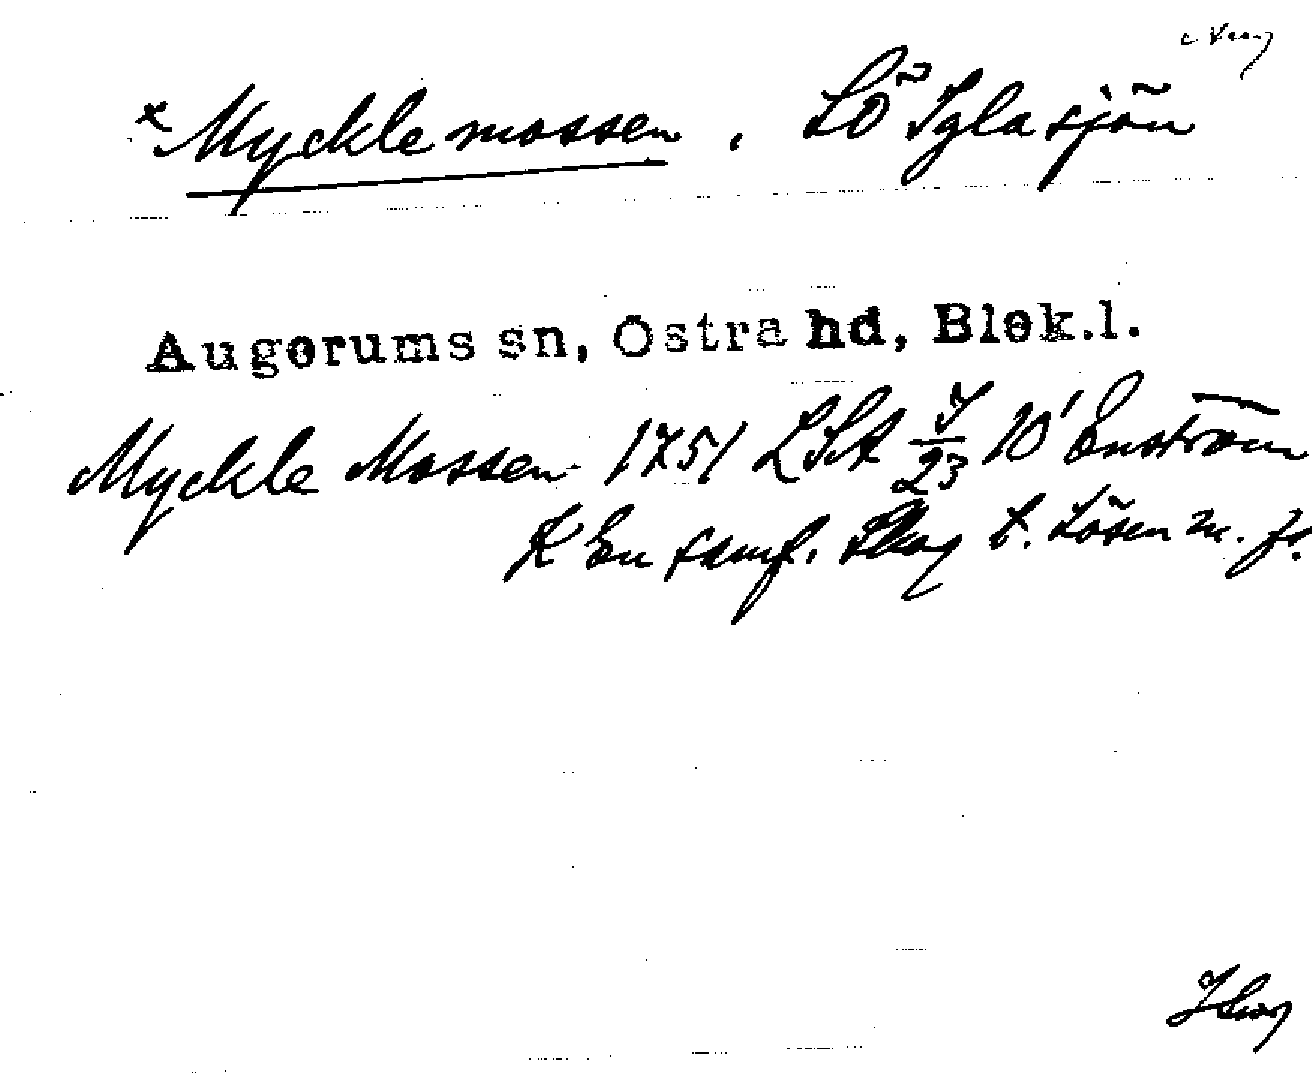 *Myckle mossen, SÖ Iglasjön
Augerums sn, Östra hd, Blek.l.
Myckle Mossen 1751 LSA I/23 10' Enström
K En samf. Skog t. Lösen m. fl.